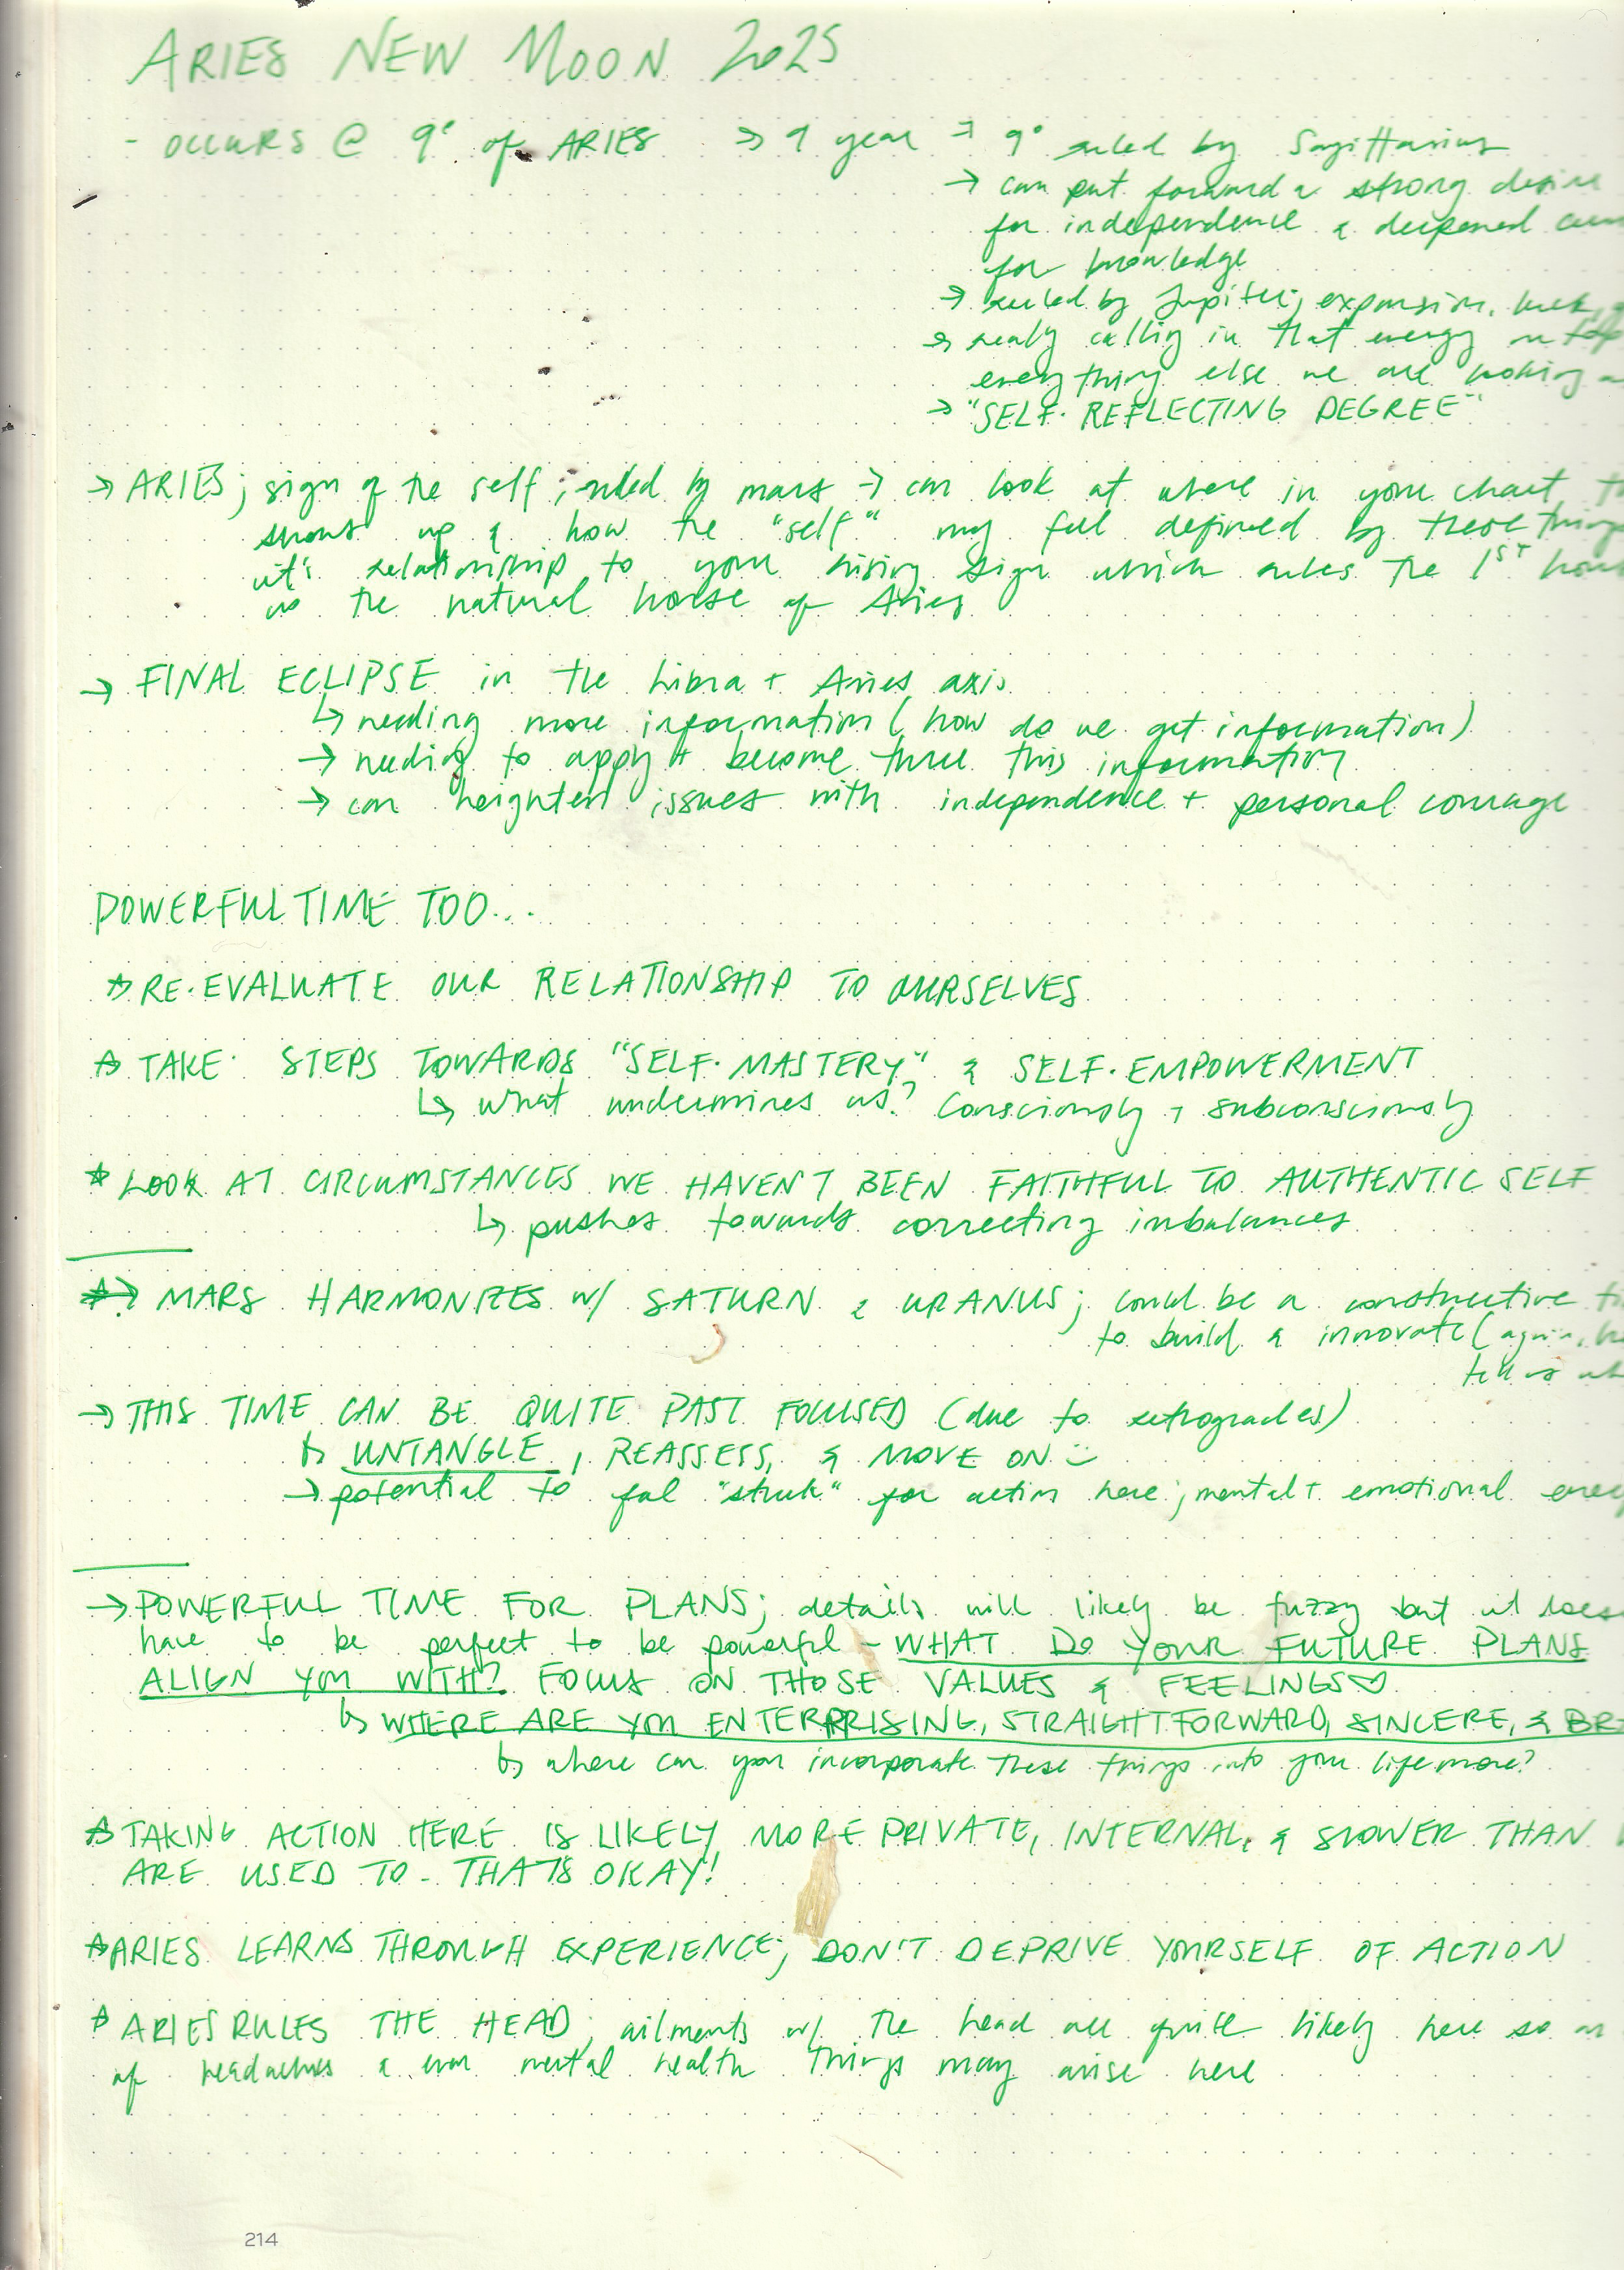 ARIES NEW MOON 2025
- OCCURS @ 9° of ARIES → 9 year → 9° ruled by Sagittarius
→ can put forward a strong desire
for independence & deepened
for knowledge
→ ruled by Jupiter; expansion, luck,
→ really calling in that energy on top
everything else we are working
→ "SELF-REFLECTING DEGREE"
→ ARIES; sign of the self; ruled by mars → can look at where in your chart
shows up & how the "self" may feel defined by these things
it's relationship to your rising sign which rules the 1ST house
as the natural house of Aries
→ FINAL ECLIPSE in the Libra + Aries axis
↳ needing more information (how do we get information)
→ needing to apply + become three this information
→ can heighten issues with independence + personal courage
POWERFUL TIME TOO...
☆ RE-EVALUATE OUR RELATIONSHIP TO OURSELVES
☆ TAKE STEPS TOWARDS "SELF-MASTERY" & SELF-EMPOWERMENT
↳ what undermines us? Consciously + subconsciously
☆ LOOK AT CIRCUMSTANCES WE HAVEN'T BEEN FAITHFUL TO AUTHENTIC SELF
↳ pushes towards correcting imbalances
→ MARS HARMONIZES w/ SATURN & URANUS; could be a constructive
to build & innovate (again,
→ THIS TIME CAN BE QUITE PAST FOCUSED (due to retrogrades)
↳ UNTANGLE, REASSESS, & MOVE ON :)
→ potential to feel "stuck" for action here; mental + emotional
→ POWERFUL TIME FOR PLANS; details will likely be fuzzy but it
have to be perfect to be powerful - WHAT DO YOUR FUTURE PLANS
ALIGN YOU WITH? FOCUS ON THOSE VALUES & FEELINGS ♡
↳ WHERE ARE YOU ENTERPRISING, STRAIGHTFORWARD, SINCERE, &
↳ where can you incorporate these things into your life more?
☆ TAKING ACTION HERE IS LIKELY MORE PRIVATE, INTERNAL, & SLOWER THAN
ARE USED TO - THAT'S OKAY!
☆ ARIES LEARNS THROUGH EXPERIENCE; DON'T DEPRIVE YOURSELF OF ACTION
☆ ARIES RULES THE HEAD; ailments w/ the head are quite likely here so
of headaches & even mental health things may arise here
214